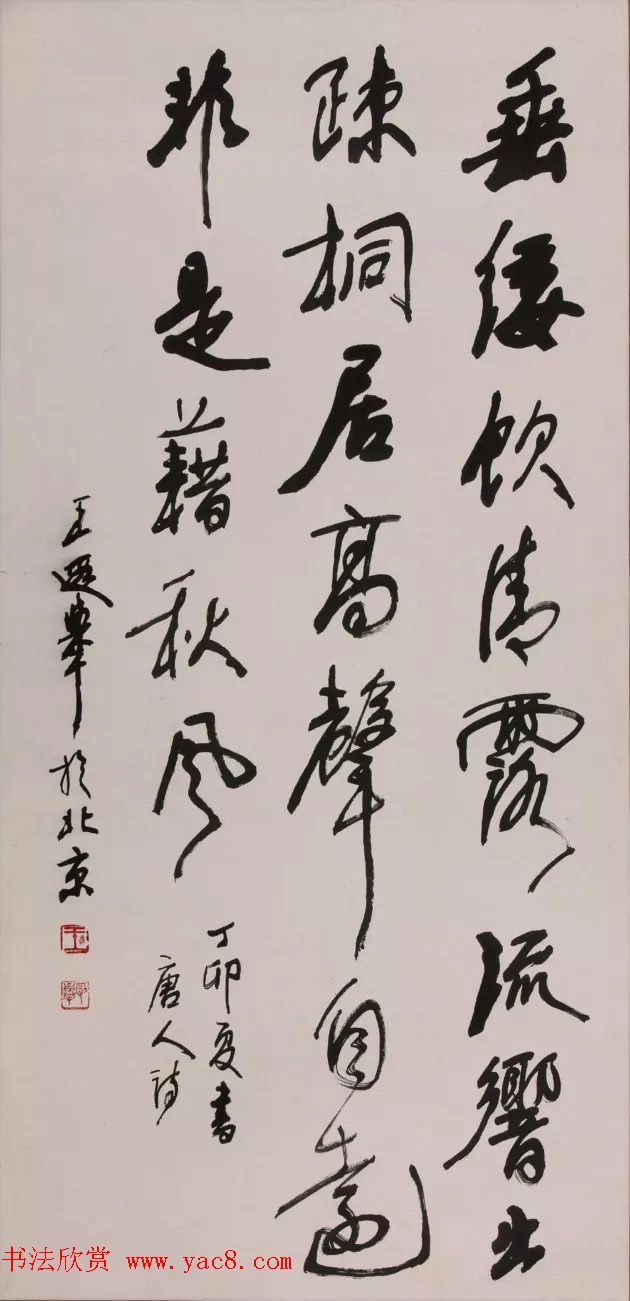 垂緌飲清露流響出
疎桐居高聲自遠
非是藉秋风
丁卯夏書
唐人詩
王遐舉於北京
书法欣赏 www.yac8.com